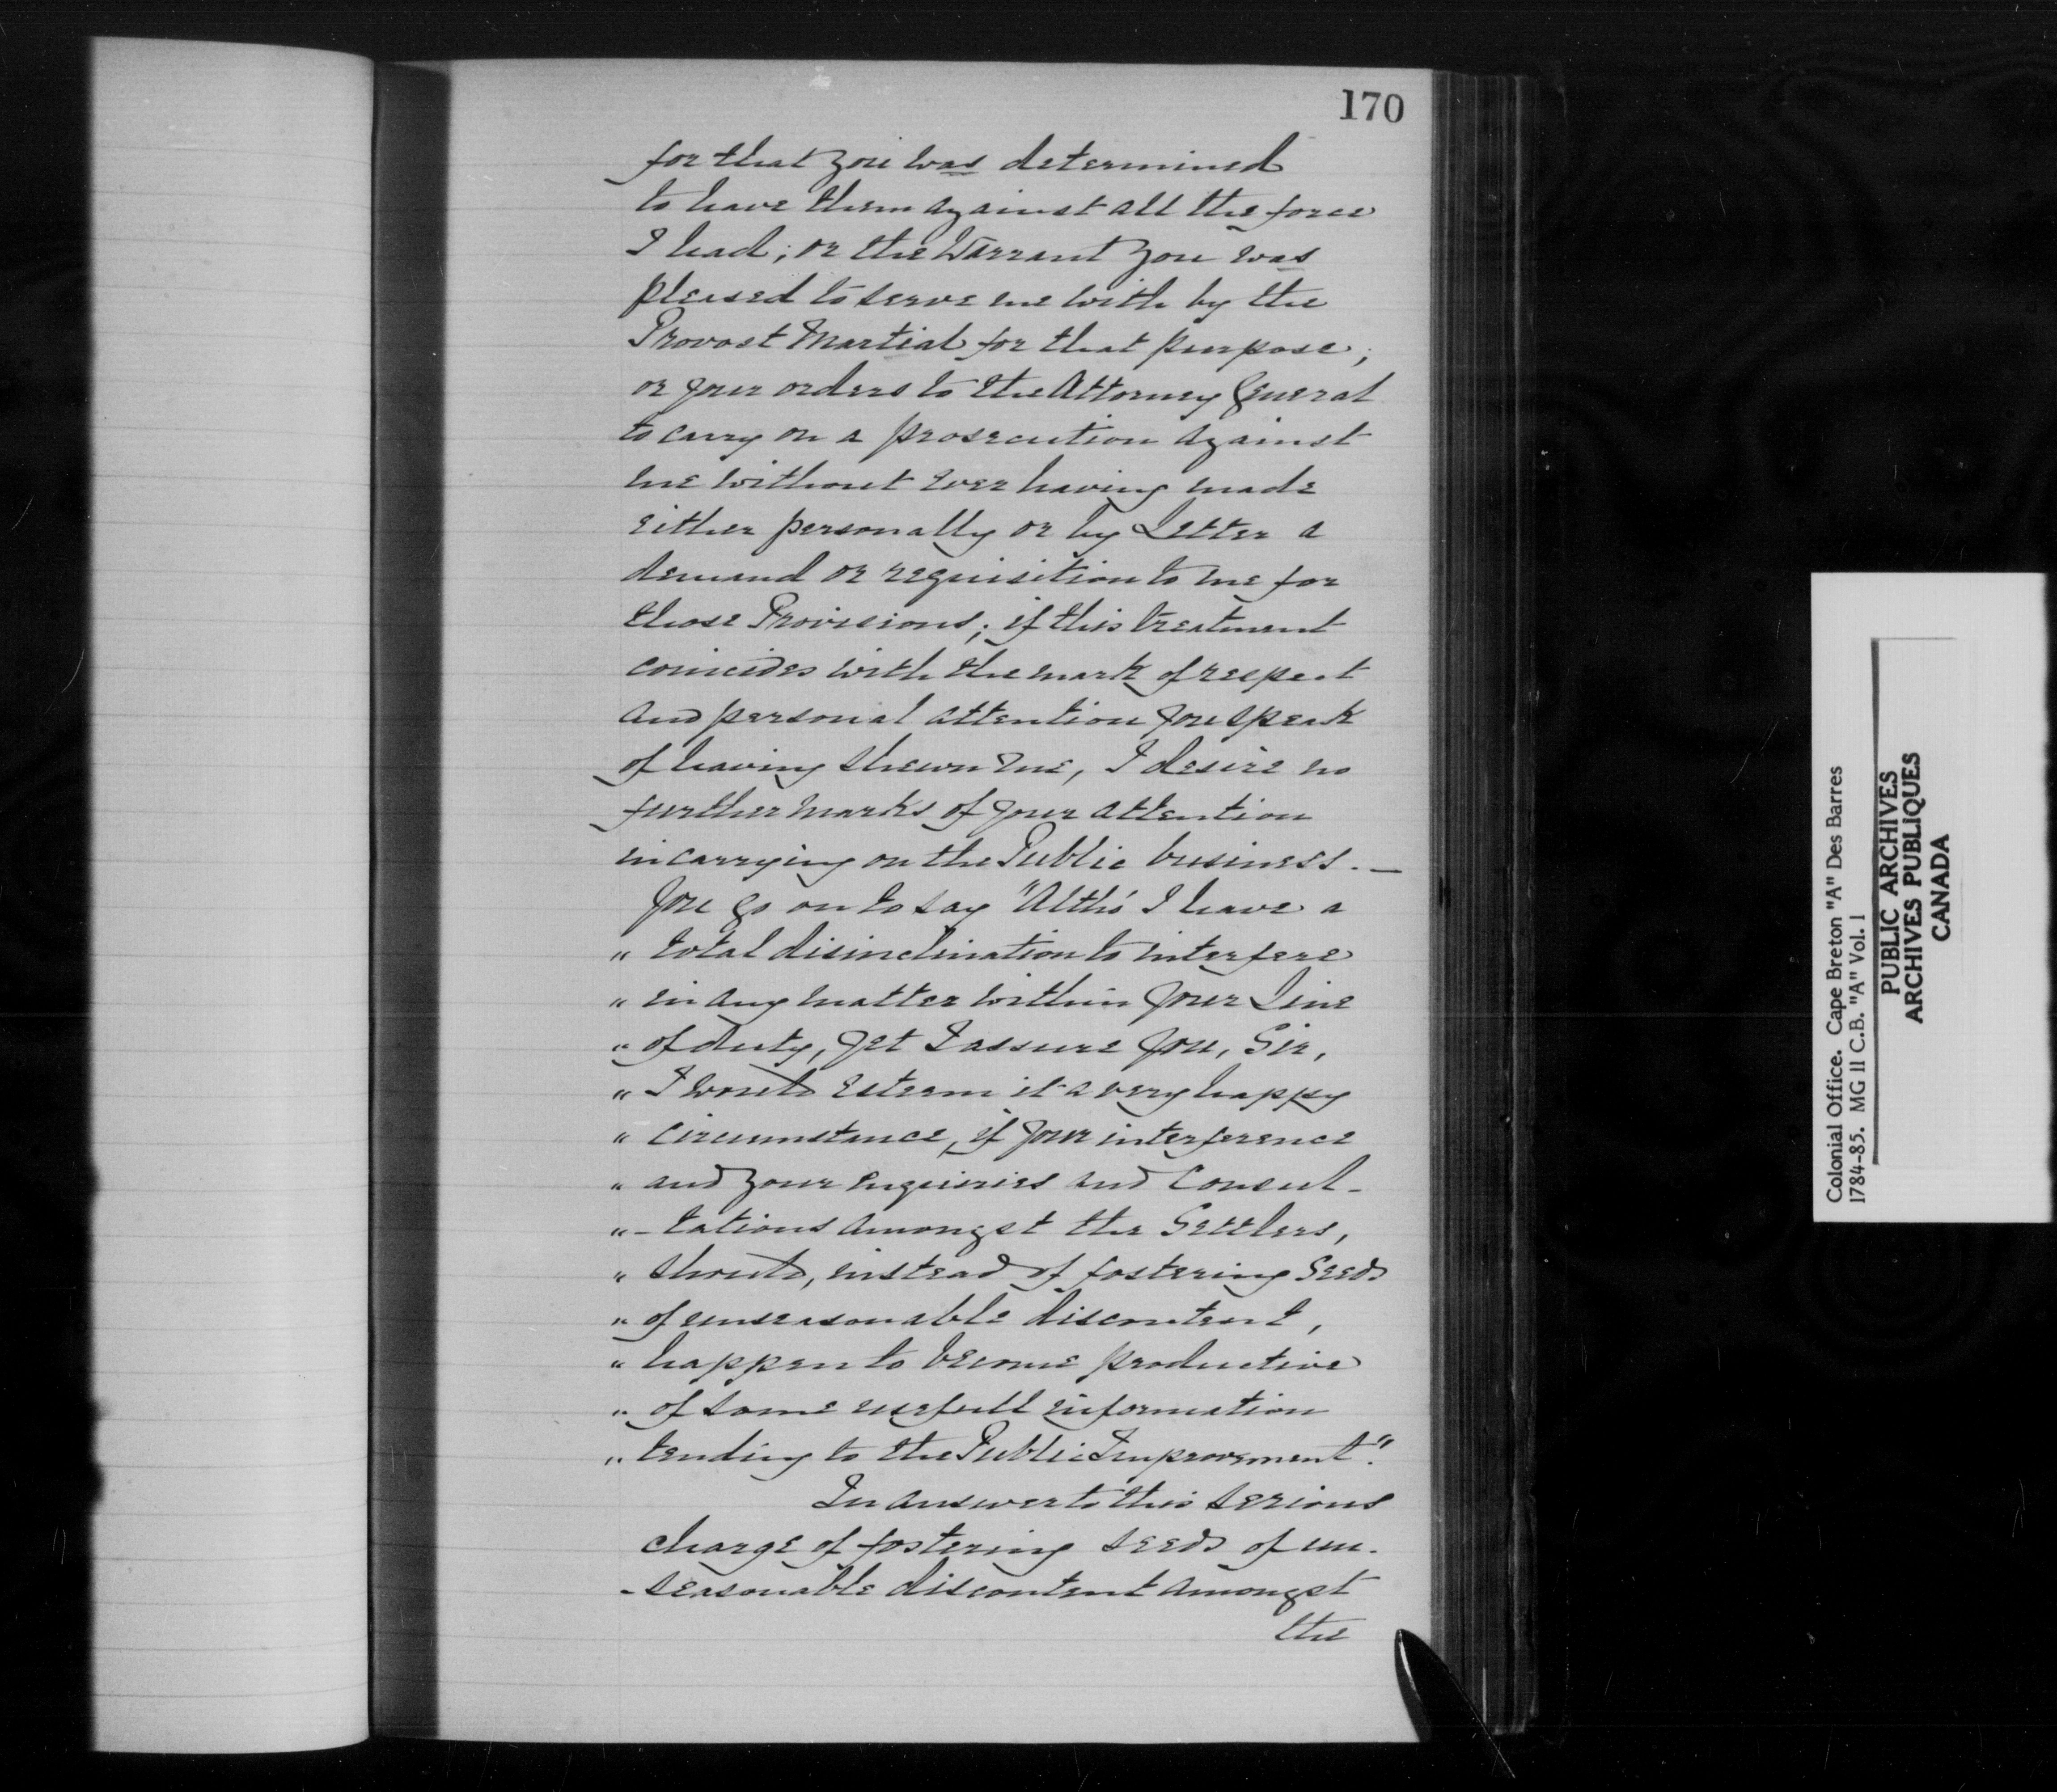 170
for that you was determined
to have them against all the force
I had; or the Warrant you was
pleased to serve me with by the
Provost Martial for that purpose;
or your orders to the Attorney General
to carry on a prosecution against
me without ever having made
either personally or by Letter a
demand or requisition to me for
those Provisions; if this treatment
coincides with the mark of respect
and personal attention you speak
of having shewn me, I desire no
further marks of your attention
in carrying on the Public business. —
You go on to say "Altho' I have a
" total disinclination to interfere
" in any matter within your Line
" of duty, yet I assure you, Sir,
" I would esteem it a very happy
" circumstance, if your interference
" and your enquiries and Consul-
" -tations amongst the Settlers,
" should, instead of fostering Seeds
" of unseasonable discontent,
" happen to become productive
" of some usefull information
" tending to the Public Improvement."
In answer to this serious
charge of fostering seeds of un-
-seasonable discontent amongst
the
Colonial Office. Cape Breton "A" Des Barres
1784-85. MG 11 C.B. "A" Vol. 1
PUBLIC ARCHIVES
ARCHIVES PUBLIQUES
CANADA